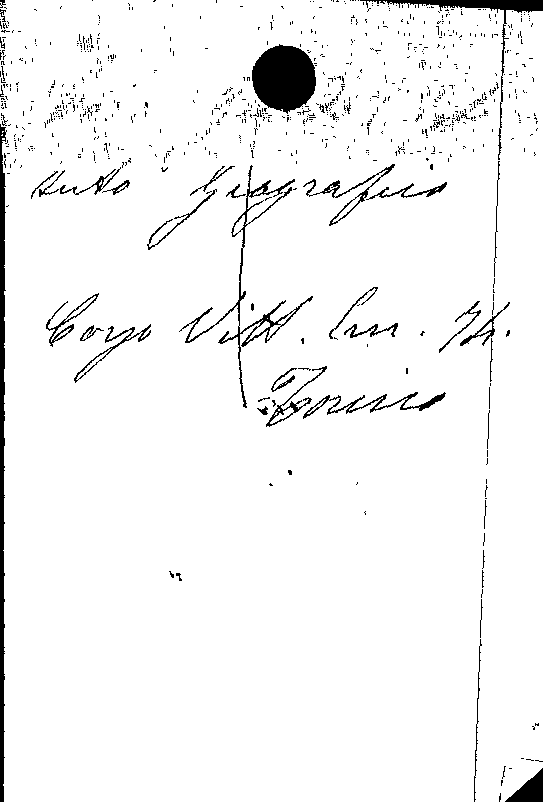 tuto Geografico
Corso Vitt. Em.
Torino